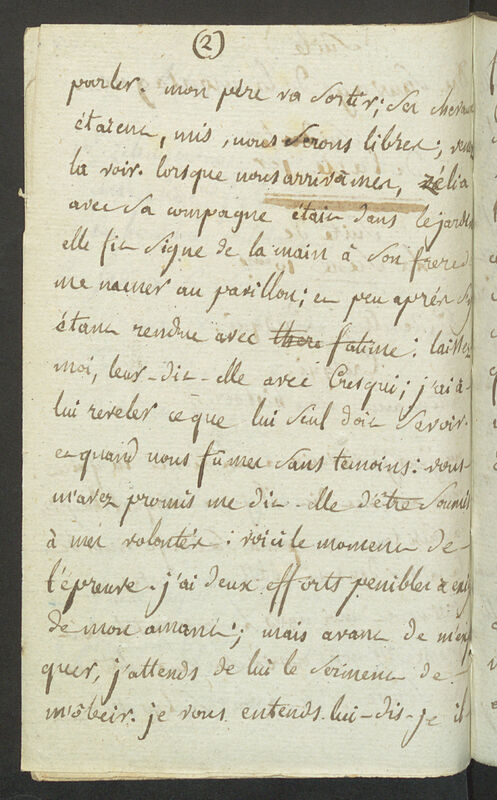 (2)
parler. mon père va sortir; ses chevaux
étaient, mis, nous serons libres; venez
la voir. lorsque nous arrivâmes, zélia
avec sa compagne était dans le jardin
elle fit signe de la main à son frere de
me mener au pavillon; et peu après s'y
étant rendue avec there fatime: laissez
moi, leur-dit-elle avec Cresqui; j'ai à
lui reveler ce que lui seul doit savoir.
et quand nous fumes sans temoins: vous
m'avez promis me dit-elle d'être soumis
à mes volontés: voici le moment de
l'épreuve. j'ai deux efforts penibles a
de mon amant; mais avant de m'ex
quer, j'attends de lui le serment de
m'obeir. je vous entends lui-dis-je il